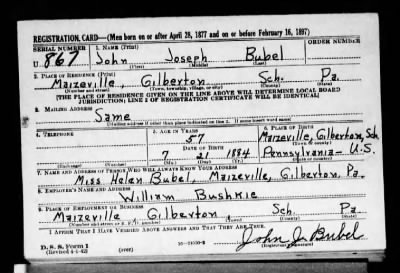 REGISTRATION CARD—(Men born on or after April 28, 1877 and on or before February 16, 1897)
SERIAL NUMBER 1. NAME (Print) ORDER NUMBER
U 867 John Joseph Bubel
(First) (Middle) (Last)
2. PLACE OF RESIDENCE (Print)
Maizeville, Gilberton Sch. Pa.
(Number and street) (Town, township, village, or city) (County) (State)
[THE PLACE OF RESIDENCE GIVEN ON THE LINE ABOVE WILL DETERMINE LOCAL BOARD
JURISDICTION; LINE 2 OF REGISTRATION CERTIFICATE WILL BE IDENTICAL]
3. MAILING ADDRESS
Same
(Mailing address if other than place indicated on line 2. If same insert word same)
4. TELEPHONE 5. AGE IN YEARS 6. PLACE OF BIRTH
57 Maizeville, Gilberton, Sch
DATE OF BIRTH (Town or county)
7 21 1884 Pennsylvania - U.S.
(Exchange) (Number) (Mo.) (Day) (Yr.) (State or country)
7. NAME AND ADDRESS OF PERSON WHO WILL ALWAYS KNOW YOUR ADDRESS
Miss Helen Bubel, Maizeville, Gilberton, Pa.
8. EMPLOYER'S NAME AND ADDRESS
William Bushkie
9. PLACE OF EMPLOYMENT OR BUSINESS
Maizeville Gilberton Sch. Pa
(Number and street or R. F. D. number) (Town) (County) (State)
I AFFIRM THAT I HAVE VERIFIED ABOVE ANSWERS AND THAT THEY ARE TRUE.
D. S. S. Form 1
(Revised 4-1-42) (over)
John J. Bubel